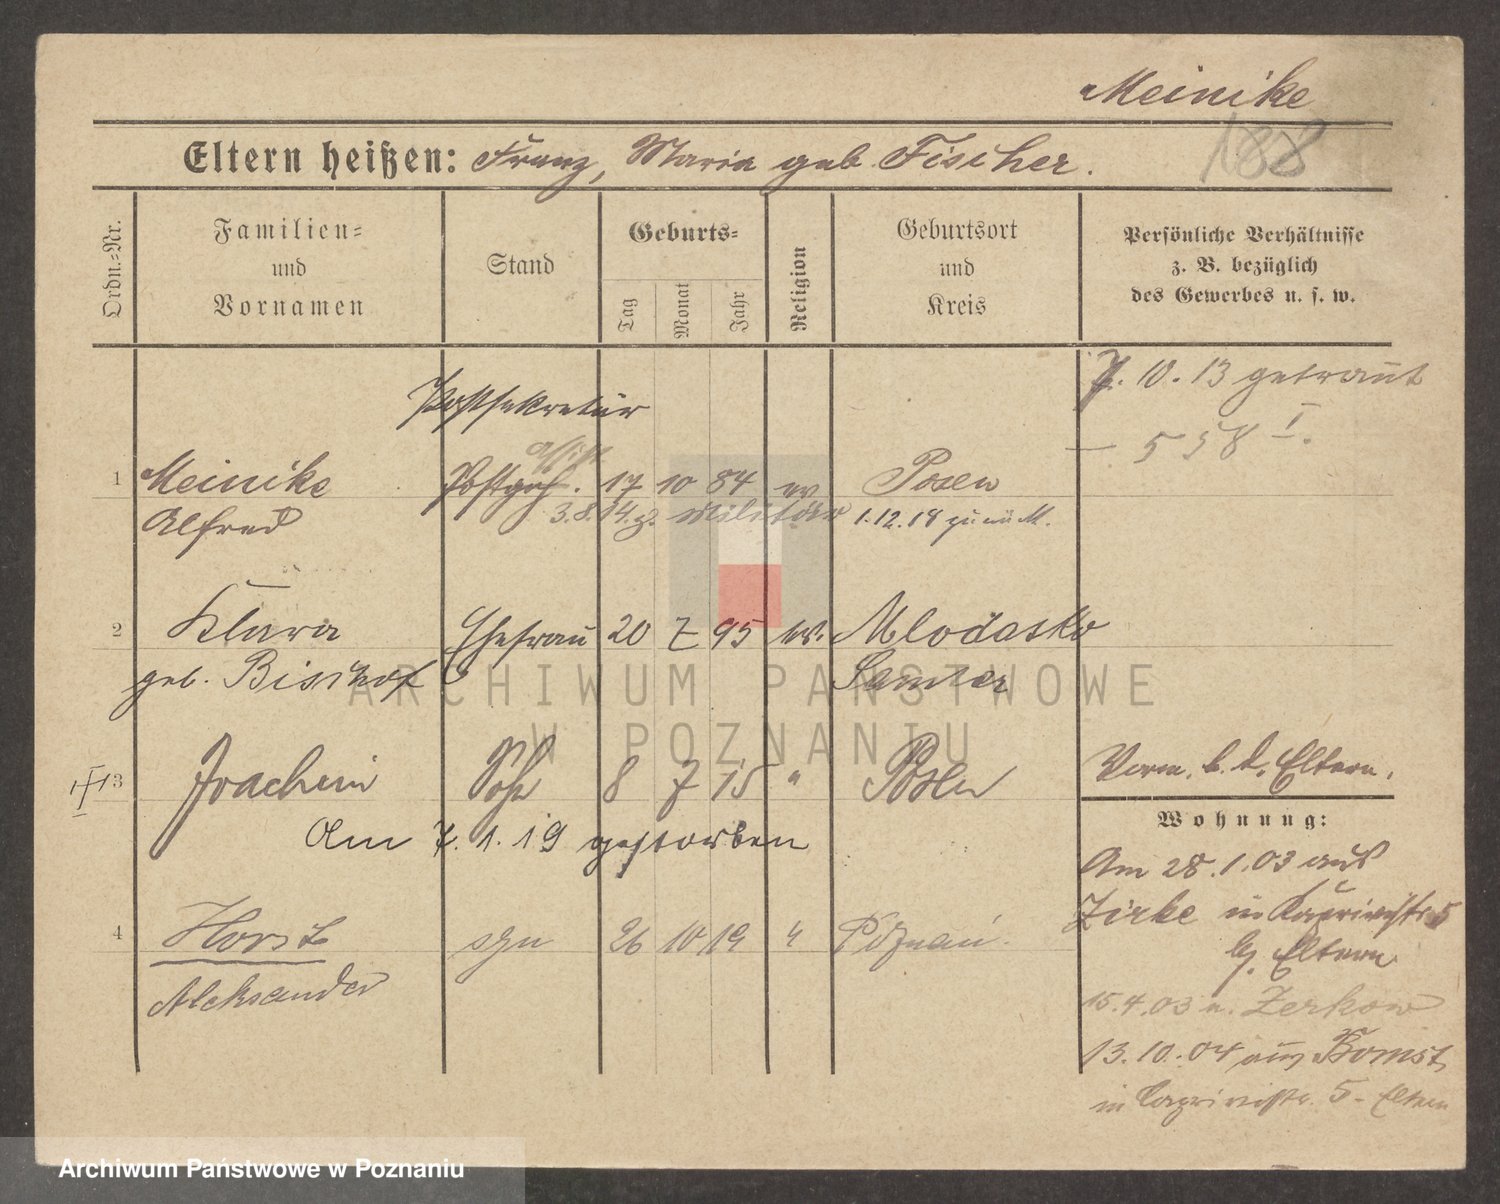 Meinike
188
Eltern heißen: Franz, Maria geb. Fischer.
Ordn.-Nr.
Familien-
und
Vornamen
Stand
Geburts-
Tag
Monat
Jahr
Religion
Geburtsort
und
Kreis
Persönliche Verhältnisse
z. B. bezüglich
des Gewerbes u. s. w.
7. 10. 13 getraut
— 558 I.
Postsekretär
assist.
1 Meinike Postgeh. 17 10 84 ev Posen
Alfred 3.8.14. z. Militär 1.12.18 zu M.
2 Klara Ehefrau 20 7 95 ev. Mlodasko
geb. Bischof Samter
3 Joachim Sohn 8 7 15 " Posen
Am 7. 1. 19 gestorben
4 Horst syn 26 10 19 " Poznań.
Aleksander
Vorm. b. d. Eltern.
Wohnung:
Am 28.1.03 aus
Zirke in Kaprivistr 5
b. Eltern
15.4.03 n. Zerkow
13.10.04 aus Bomst
in Caprivistr. 5 - Eltern
ARCHIWUM PAŃSTWOWE
W POZNANIU
Archiwum Państwowe w Poznaniu